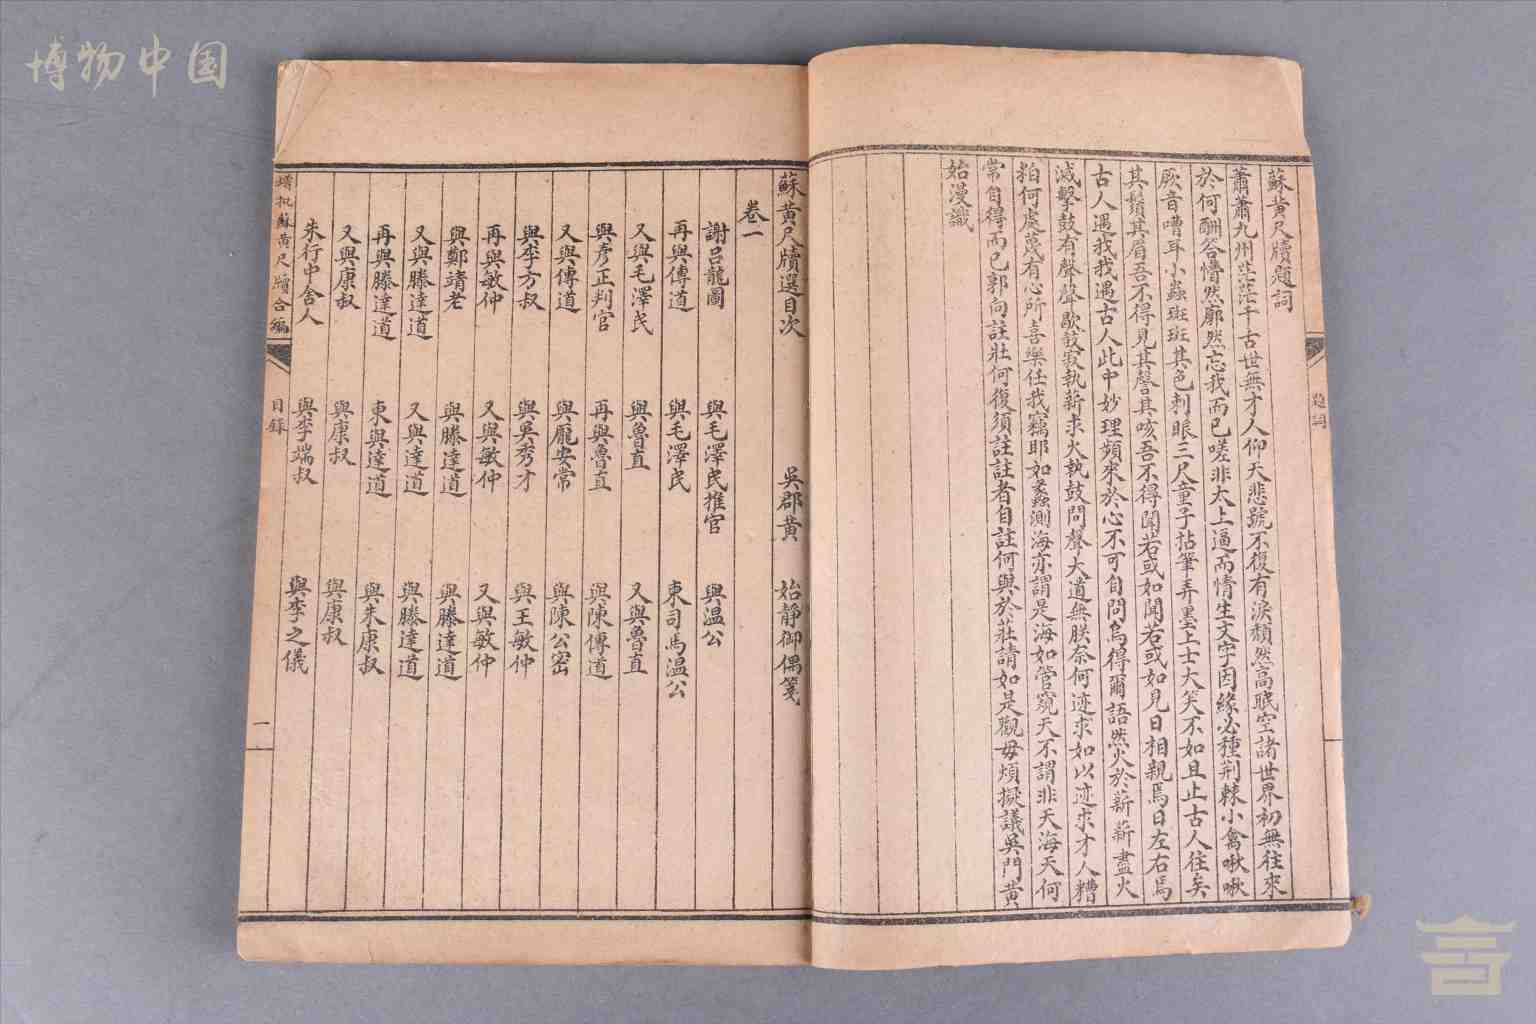 博物中国
蘇黄尺牘題詞
蕭蕭九州茫茫千古世無才人仰天悲號不復有淚頽然高眠空諸世界初無往來
於何酬答懵然廓然忘我而已嗟非太上過而情生文字因緣必種荆棘小禽啾啾
厥音嘈耳小蟲斑斑其色刺眼三尺童子拈筆弄墨上士大笑不如且止古人往矣
其鬚其眉吾不得見其謦其咳吾不得聞若或如聞若或如見日相親焉日左右焉
古人遇我我遇古人此中妙理頻來於心不可自問烏得爾語然火於薪薪盡火
滅擊鼓有聲聲歇鼓寂執薪求火執鼓問聲大道無朕奈何迹求如以迹求才人糟
粕何處蔑有心所喜樂任我竊耶如蠡測海亦謂是海如管窺天不謂非天海天何
常自得而已郭向註莊何復須註註者自註何與於莊請如是觀毋煩擬議吳門黄
始漫識
題詞
蘇黄尺牘選目次
吳郡黄 始靜御偶箋
卷一
謝吕龍圖 與毛澤民推官 與温公
再與傅道 與毛澤民 東司馬温公
又與毛澤民 與魯直 又與魯直
與彦正判官 再與魯直 與陳傳道
又與傳道 與龐安常 與陳公密
與李方叔 與吳秀才 與王敏仲
再與敏仲 又與敏仲 又與敏仲
與鄭靖老 與滕達道 與滕達道
又與滕達道 又與達道 與滕達道
再與滕達道 東與達道 與朱康叔
又與康叔 與康叔 與康叔
朱行中舍人 與李端叔 與李之儀
增批蘇黄尺牘合編
目録
一